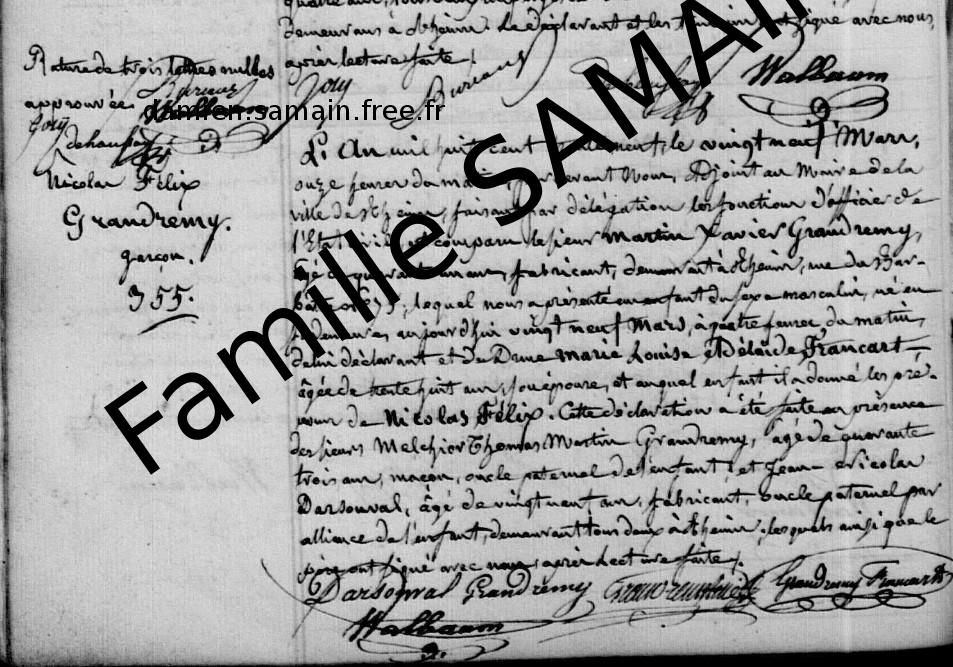 demeurans à Rheims. Le déclarant et les témoins ont signé avec nous
après lecture faite.
Jory
Walbaum
Rature de trois lettres nulles
approuvée.
Jory
damien.samain.free.fr
Famille SAMAIN
Nicolas Félix
Grandremy.
garçon.
355.
L'An mil huit cent le vingt neuf Mars,
onze heures du matin, par devant Nous, Adjoint au Maire de la
ville de Rheims, faisant par délégation les fonctions d'officier de
l'Etat civil, est comparu le sieur Martin Xavier Grandremy,
âgé de quarante un ans, fabricant, demeurant à Rheims, rue du Bar-
bâtre lequel nous a présenté un enfant du sexe masculin, né en
sa demeure, aujourd'hui vingt neuf Mars, à quatre heures du matin,
de lui déclarant et de Dame Marie Louise Adélaïde Francart
âgée de trente huit ans, son épouse, et auquel enfant il a donné les pré-
noms de Nicolas Félix. Cette déclaration a été faite en présence
des sieurs Melchior Thomas Martin Grandremy, âgé de quarante
trois ans, maçon, oncle paternel de l'enfant, et Jean Nicolas
Darsonval, âgé de vingt neuf ans, fabricant, oncle paternel par
alliance de l'enfant, demeurant tous deux à Rheims, lesquels ainsi que le
père ont signé avec nous, après lecture faite.
Darsonval Grandremy Grandremy Francart
Walbaum